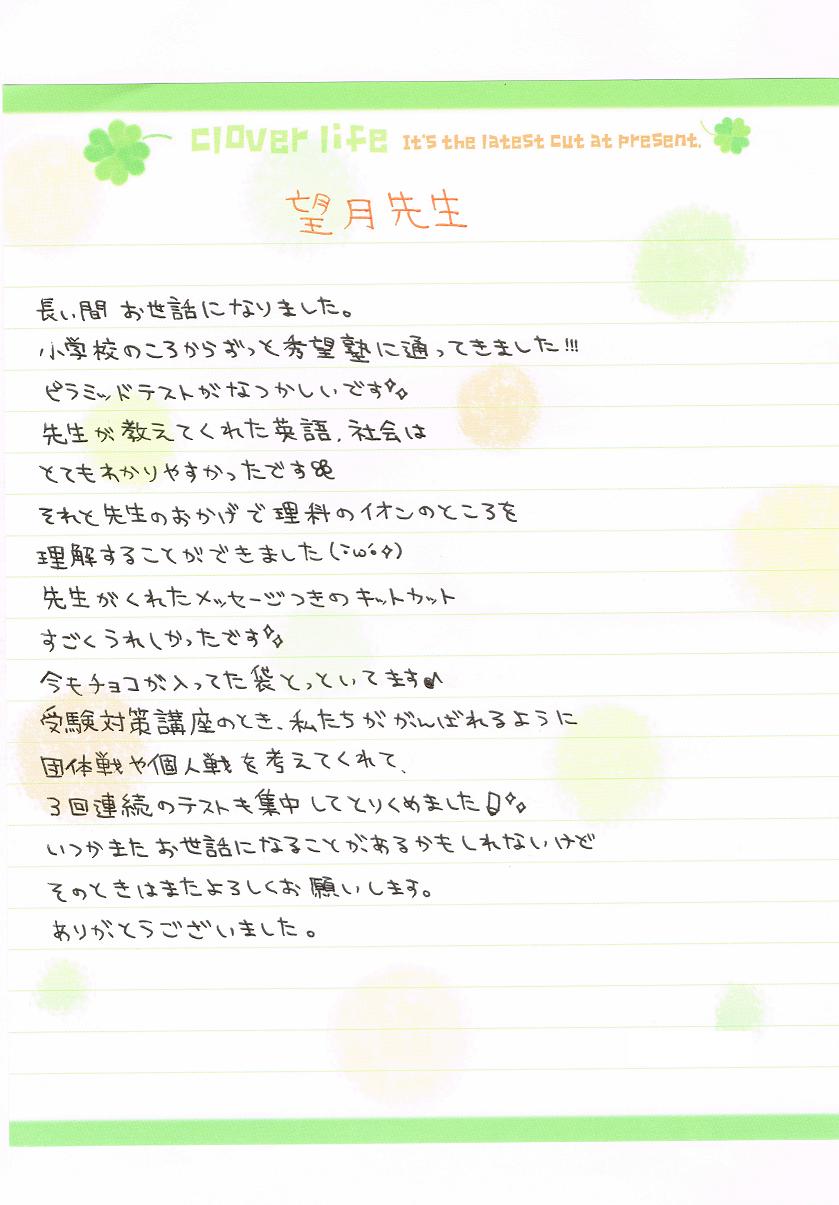 clover life It's the latest cut at present.
望月先生
長い間 お世話になりました。
小学校のころからずっと秀望塾に通ってきました!!!
ピラミッドテストがなつかしいです
先生が教えてくれた英語、社会は
とてもわかりやすかったです
それと先生のおかげで理科のイオンのところを
理解することができました(･ω･✧)
先生がくれたメッセージつきのキットカット
すごくうれしかったです
今もチョコが入ってた袋とっといてます♪
受験対策講座のとき、私たちががんばれるように
団体戦や個人戦を考えてくれて、
3回連続のテストも集中してとりくめました
いつかまたお世話になることがあるかもしれないけど
そのときはまたよろしくお願いします。
ありがとうございました。